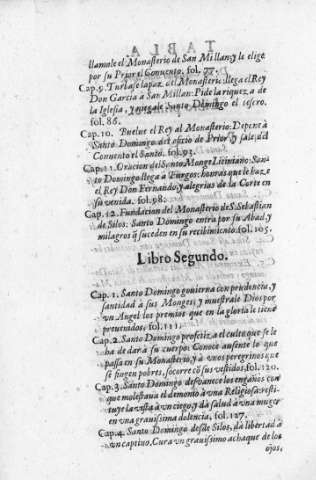 TABLA
llamole el Monasterio de San Millan, y le elige
por su Prior el Convento. fol. 77.
Cap. 9. Turbase la paz del Monasterio: llega el Rey
Don Garcia à San Millan: Pide la riqueza de
la Iglesia, y niegale Santo Domingo el tesoro.
fol. 86.
Cap. 10. Buelve el Rey al Monasterio: Depone à
Santo Domingo del oficio de Prior, y sale del
Convento el Santo. fol. 93.
Cap. 11. Oracion del Santo Monge Liciniano: Santo
Domingo llega à Burgos: honras que le haze
el Rey Don Fernando, y alegrias de la Corte en
su venida. fol. 98.
Cap. 12. Fundacion del Monasterio de S. Sebastian
de Silos: Santo Domingo entra por su Abad, y
milagros q̃ suceden en su recibimiento. fol. 105.
Libro Segundo.
Cap. 1. Santo Domingo govierna con prudencia, y
santidad à sus Monges, y muestrale Dios por
un Angel los premios que en la gloria le tiene
prevenidos. fol. 111.
Cap. 2. Santo Domingo profetiza el culto que se le
ha de dar à su cuerpo: Conoce ausente lo que
passa en su Monasterio, y à unos peregrinos que
se fingen pobres, socorre cõ sus vestidos. fol. 120.
Cap. 3. Santo Domingo desvanece los engaños con
que molestava el demonio à una Religiosa: restituye
la vista à un ciego, y dà salud à una muger
en una gravissima dolencia. fol. 127.
Cap. 4. Santo Domingo desde Silos, dà libertad à
un captivo. Cura un gravissimo achaque de los
ojos,